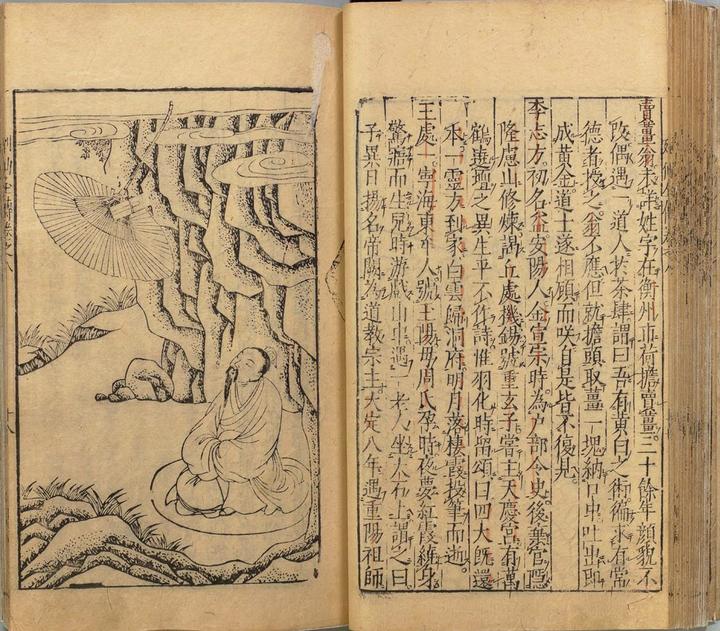 賣薑翁未詳姓字在衡州市荷擔賣薑三十餘年顏貌不
改偶遇一道人於茶肆謂曰吾有黄白之術徧求有常
德者授之翁不應但就擔頭取薑一塊納口中吐出即
成黃金道士遂相顧而咲自是皆不復見
李志方初名益安陽人金宣宗時為戶部令史後棄官隱
隆慮山修煉謁丘處機錫號重玄子嘗主天慶宮有萬
鶴遶壇之異生平不作詩惟羽化時留頌曰四大既還
本一靈方到家白雲歸洞府明月落棲霞投筆而逝。
王處一寧海東牟人號玉陽母周氏孕時夜夢紅霞繞身
驚寤而生兒時游戲山中遇一老人坐大石上謂之曰
子異日揚名帝闕為道教宗主大定八年遇重陽祖師
列仙全傳卷之八